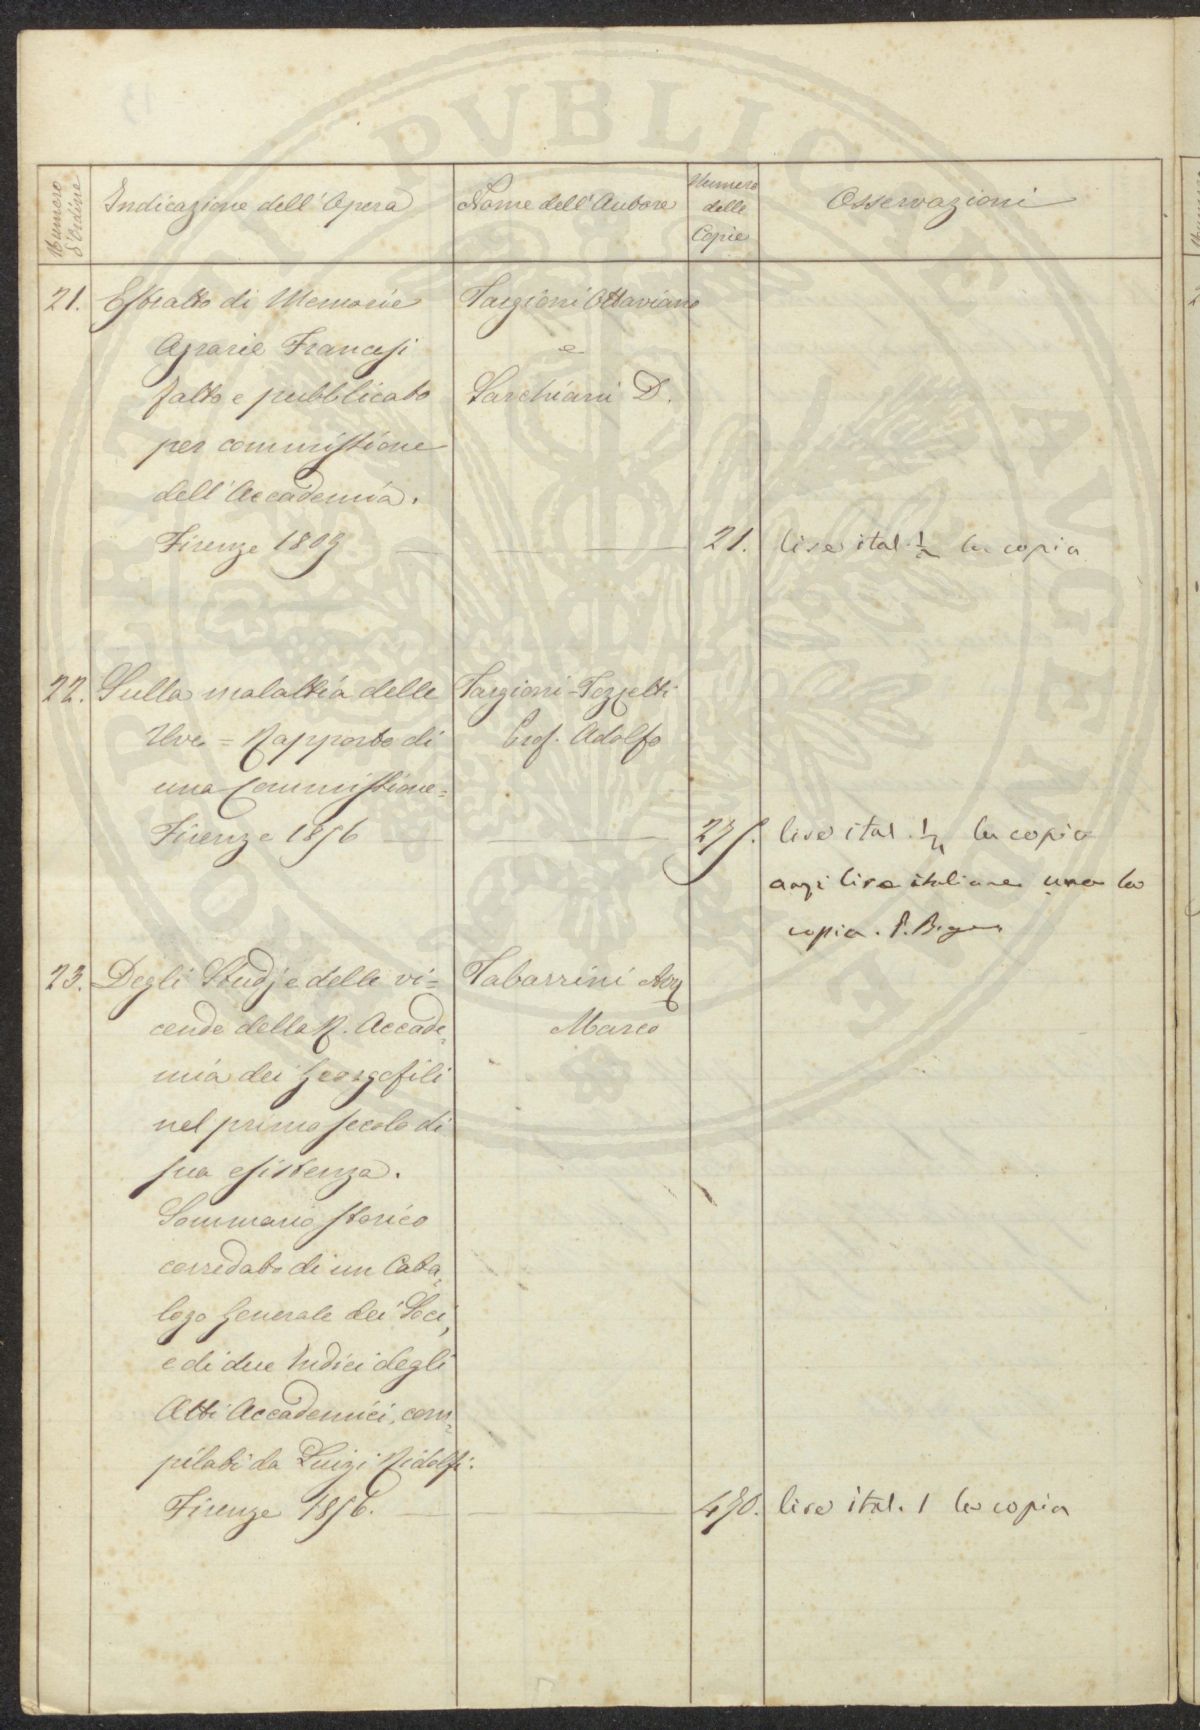 PUBLICAE AUGENDAE
Numero d'Ordine
Indicazione dell'Opera
Nome dell'Autore
Numero delle Copie
Osservazioni
21. Estratto di Memorie
Agrarie Francesi
fatto e pubblicato
per commissione
dell'Accademia.
Firenze 1809
Targioni Ottaviano
e
Sarchiani D.
21.
lire ital. ½ la copia
22. Sulla malattia delle
Uve = Rapporto di
una Commissione =
Firenze 1856
Targioni-Tozzetti
Prof. Adolfo
275.
lire ital. ½ la copia
anzi lire italiane una la
copia.
23. Degli Studj e delle vi=
cende della R. Accade=
mia dei Georgofili
nel primo secolo di
sua esistenza.
Sommario storico
corredato di un Cata=
logo Generale dei Soci,
e di due Indici degli
Atti Accademici, com=
pilati da Luigi Ridolfi.
Firenze 1856.
Tabarrini Avv
Marco
470.
lire ital. 1 la copia